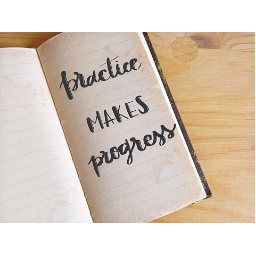 practice
MAKES
progress